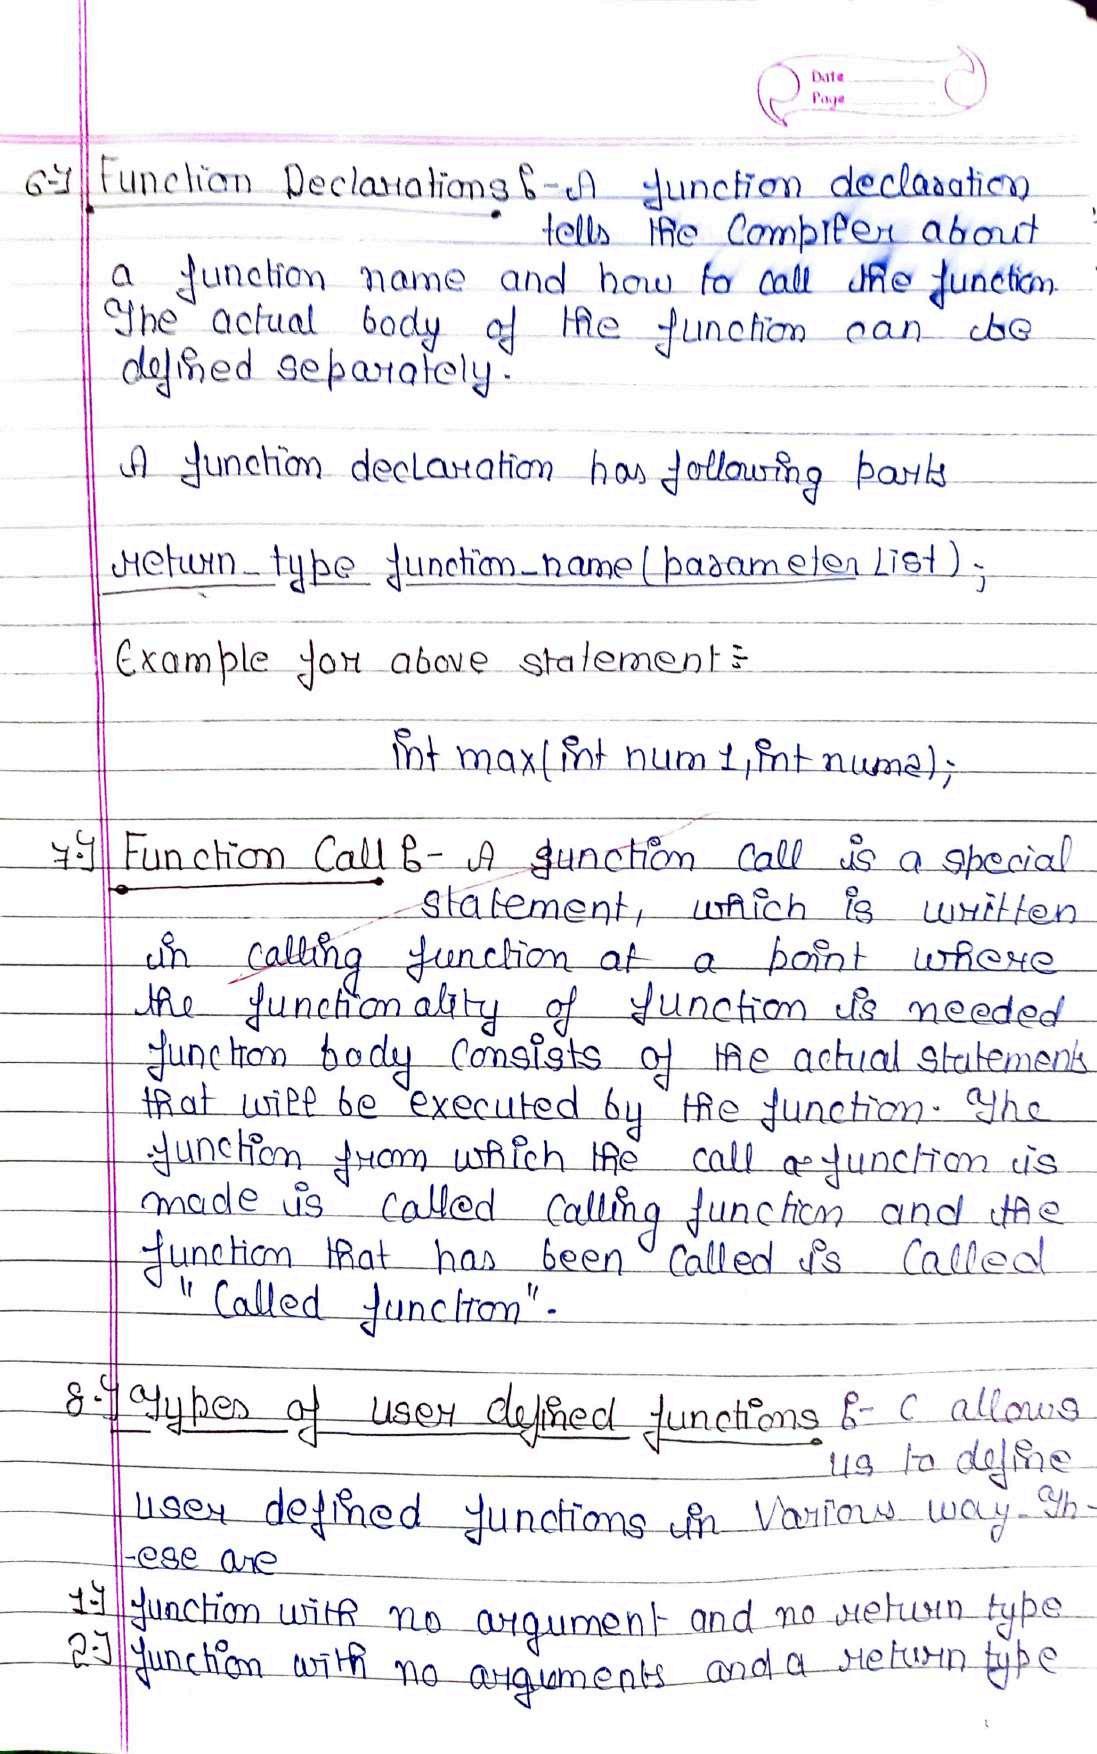 Date
Page
6.) Function Declarations :- A function declaration
tells the Compiler about
a function name and how to call the function.
The actual body of the function can be
defined separately.
A function declaration has following parts
return_type function_name(parameter List);
Example for above statement :-
int max(int num1,int num2);
7.) Function Call :- A function call is a special
statement, which is written
in calling function at a point where
the functionality of function is needed
function body Consists of the actual statements
that will be executed by the function. The
function from which the call a function is
made is called calling function and the
function that has been called is called
"Called function".
8.) Types of user defined functions :- C allows
us to define
user defined functions in Various way. Th-
-ese are
1.) function with no argument and no return type
2.) function with no arguments and a return type